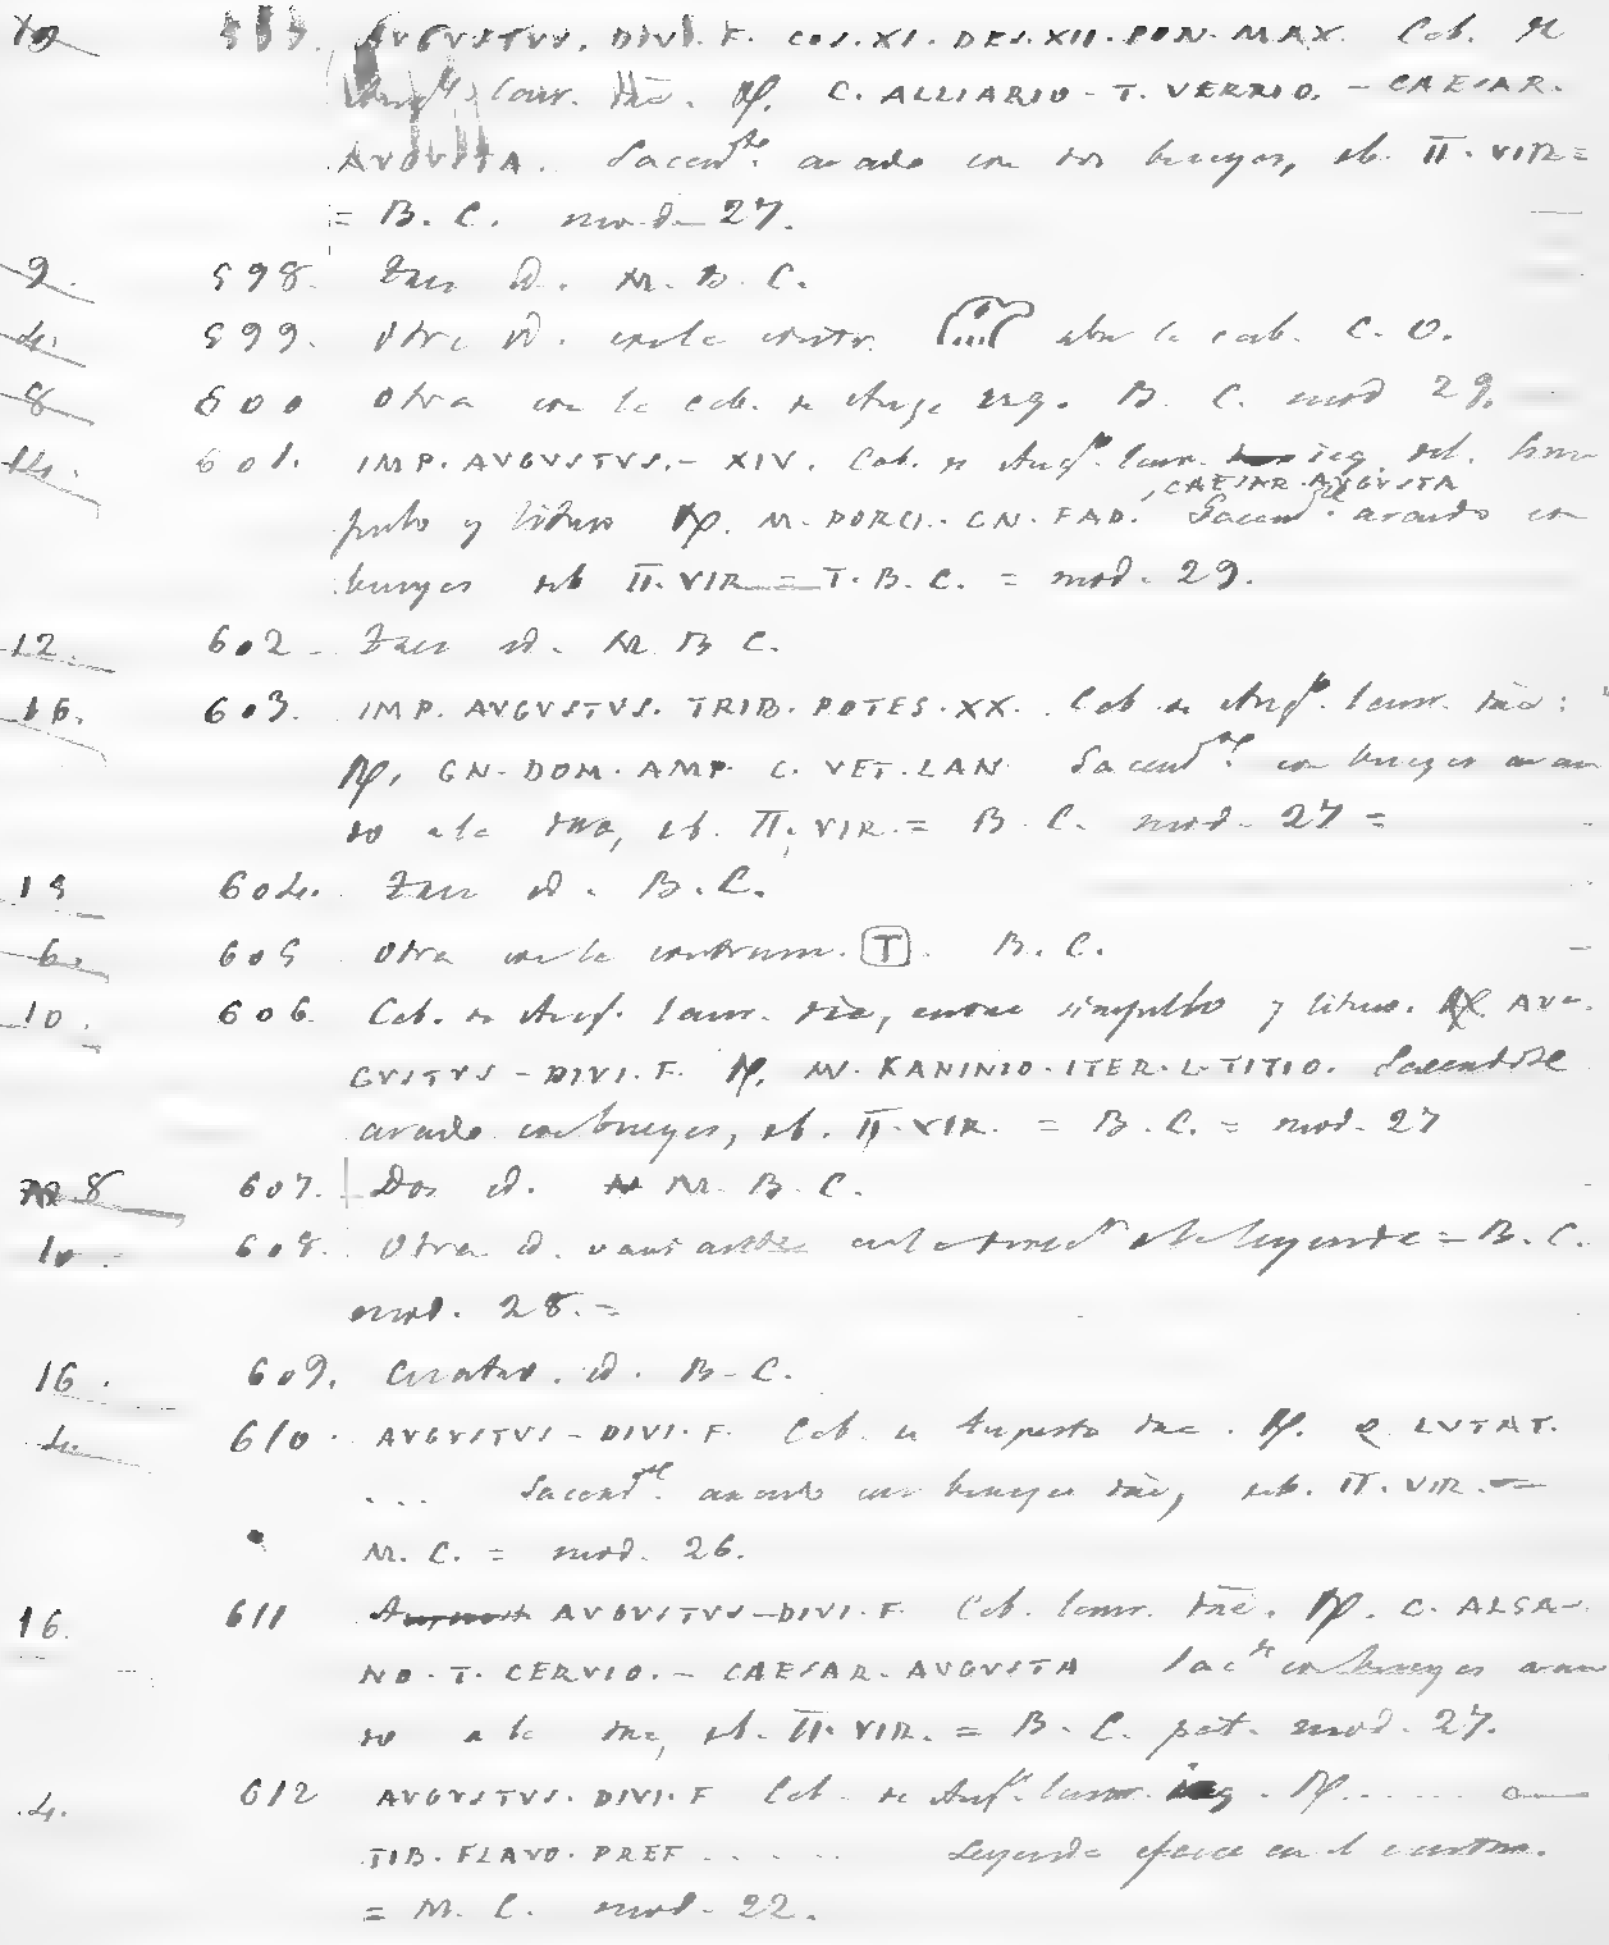 10 597. AVGVSTVS. DIVI. F. COS. XI. DES. XII. PON. MAX. Cab. de
Aug.to laur. dra. Rf. C. ALLIARIO - T. VERRIO. - CAESAR.
AVGVSTA. Sacerd.te arado con dos bueyes, eb. II. VIR =
= B. C. mod- 27.
9. 598. Tres id. M. B. C.
4. 599. Otra id. con la contr. sobre la cab. C. O.
8 600 Otra con la cab. de Aug. izq. B. C. mod 29.
14. 601. IMP. AVGVSTVS. - XIV. Cab. de Aug.to laur. izq. del. sim
pulo y lituo Rf. M. PORCI. CN. FAD. , CAESAR. AVGVSTA Sacerd.te arando con
bueyes eb II. VIR = T. B. C. = mod. 29.
12. 602 - Tres id. M B C.
16. 603. IMP. AVGVSTVS. TRIB. POTES. XX. Cab de Aug.to laur. dra:
Rf, GN. DOM. AMP. C. VET. LAN. Sacerd.te con bueyes aran
do a la dra, eb. II. VIR. = B. C. mod- 27 =
15 604. Tres id. B. C.
6. 605 Otra con la contram. T. B. C.
10. 606. Cab. de Aug. laur. dra, entre simpullo y lituo. AV-
GVSTVS - DIVI. F. Rf. M. KANINIO. ITER. L. TITIO. Sacerdote
arando con bueyes, eb. II. VIR. = B. C. = mod- 27
8 607. Dos id. M. B. C.
10. 608. Otra id. variante en la de la leyenda = B. C.
mod. 28. =
16. 609. Cuatro. id. B-C.
4. 610. AVGVSTVS - DIVI. F. Cab. de Augusto dra. Rf. Q. LVTAT.
... Sacerd.te arando con bueyes dra, eb. II. VIR. =
M. C. = mod. 26.
16. 611 AVGVSTVS - DIVI. F. Cab. laur. dra. Rf. C. ALSA-
NO. T. CERVIO. - CAESAR. AVGVSTA Sac.te con bueyes aran
do a la dra, eb. II. VIR. = B. C. pat. mod. 27.
4. 612 AVGVSTVS. DIVI. F Cab. de Aug.to laur. izq. Rf. . . . . . .
TIB. FLAVO. PREF . . . . . Leyenda en el centro.
= M. C. mod- 22.